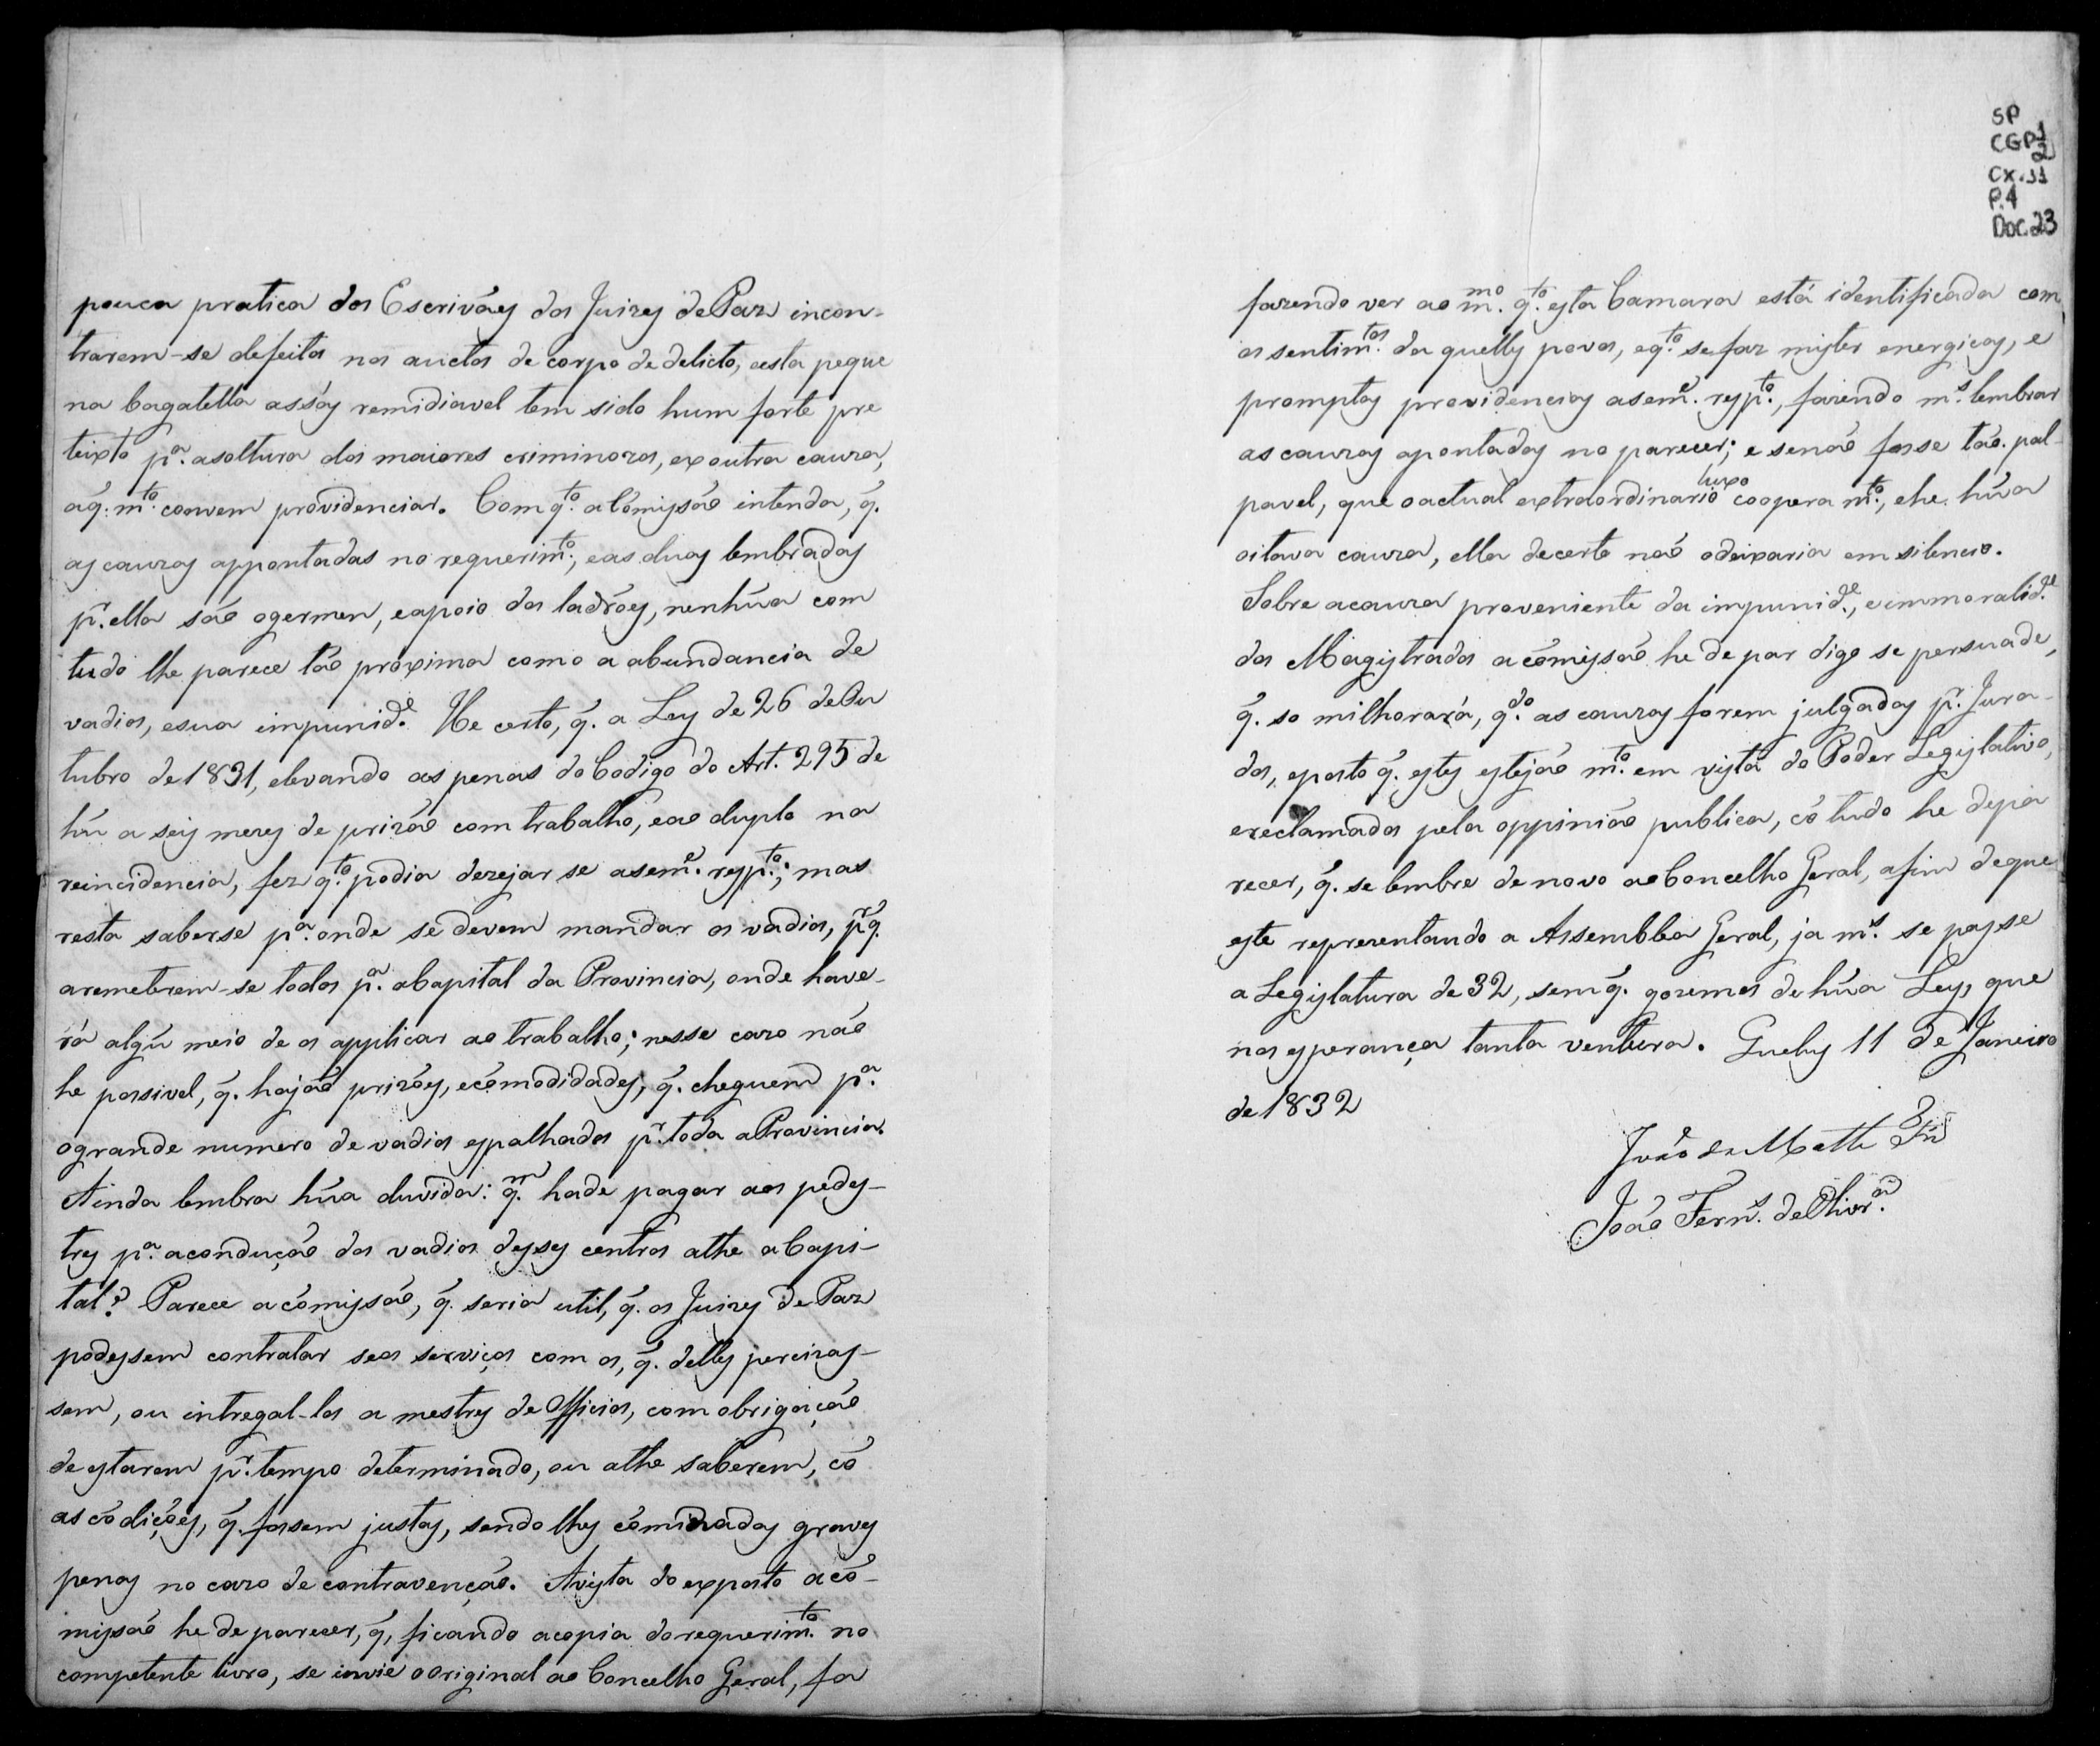 pouca pratica dos Escrivães dos Juizes de Paz incon-
trarem-se defeitos nos auctos de corpo de delicto, esta peque
na bagatella assás remidiavel tem sido hum forte pre
teixto pª. a soltura dos maiores criminozos, e outra cauza,
a q̃. mtº. convem providenciar. Com qtº. a Comissão intenda, q̃.
as cauzas appontadas no requerimtº., e as duas lembradas
pr. ella são o germen, e apoio dos ladrões, nenhũa com
tudo lhe parece tão proxima como a abundancia de
vadios, e sua impunidᵉ. He certo, q̃. a Ley de 26 de Ou
tubro de 1831, elevando as penas do Codigo do Art. 295 de
hũ a seis mezes de prizão com trabalho, e ao duplo na
reincidencia, fez qtº. podia dezejar se a semᵉ. resptº.; mas
resta saberse pª. onde se devem mandar os vadios, pr q̃.
a remeterem-se todos pª. a Capital da Provincia, onde have-
rá algũ meio de os applicar ao trabalho; nesse cazo não
he possivel, q̃. hajão prizões, e cõmodidades, q̃. cheguem pª.
o grande numero de vadios espalhados pr. toda a Provincia.
Ainda lembra hũa duvida: qm̃. hade pagar aos pedes-
tres pª. a condução dos vadios desses centros athe a Capi-
tal? Parece a cõmissão, q̃. seria util, q̃. os Juizes de Paz
podessem contratar seos serviços com os, q̃. delles percizas-
sem, ou intregal-los a mestres de Officios, com obrigação
de estarem pr. tempo determinado, ou athe saberem, cõ
as cõdições, q̃. fossem justas, sendo lhes cõminadas graves
penas no cazo de contravenção. A vista do exposto a cõ-
missão he de parecer, q̃, ficando a copia do requerimtº. no
competente livro, se invie o original ao Concelho Geral, fa
SP
CGP 1
2
Cx. 11
P. 4
Doc. 23
fazendo ver ao mmº. qtº. esta Camara está identificada com
os sentimtos. da quelles povos, e qtº. se faz mister energicas, e
promptas providencias a semᵉ. resptº., fazendo ms. lembrar
as cauzas apontadas no parecer; e se não fosse tão pal-
luxo
pavel, que o actual extraordinario coopera mtº., e he hũa
oitava cauza, ella de certo não o deixaria em silencio.
Sobre a cauza proveniente da impunidᵉ., e immoralidᵉ.
dos Magistrados a cõmissão he de par digo se persuade,
q̃. so milhorará, qdº. as cauzas forem julgadas pr. Jura-
dos, e posto q̃. estes estejão mtº. em vista do Poder Legislativo,
e reclamados pela oppinião publica, cõ tudo he de pa
recer, q̃. se lembre de novo ao Concelho Geral, a fim de que
este reprezentando a Assemblea Geral, ja ms. se passe
a Legislatura de 32, sem q̃. gozemos de hũa Ley, que
nos esperança tanta ventura. Queluz 11 de Janeiro
de 1832
João Ferns. de Olivrª.